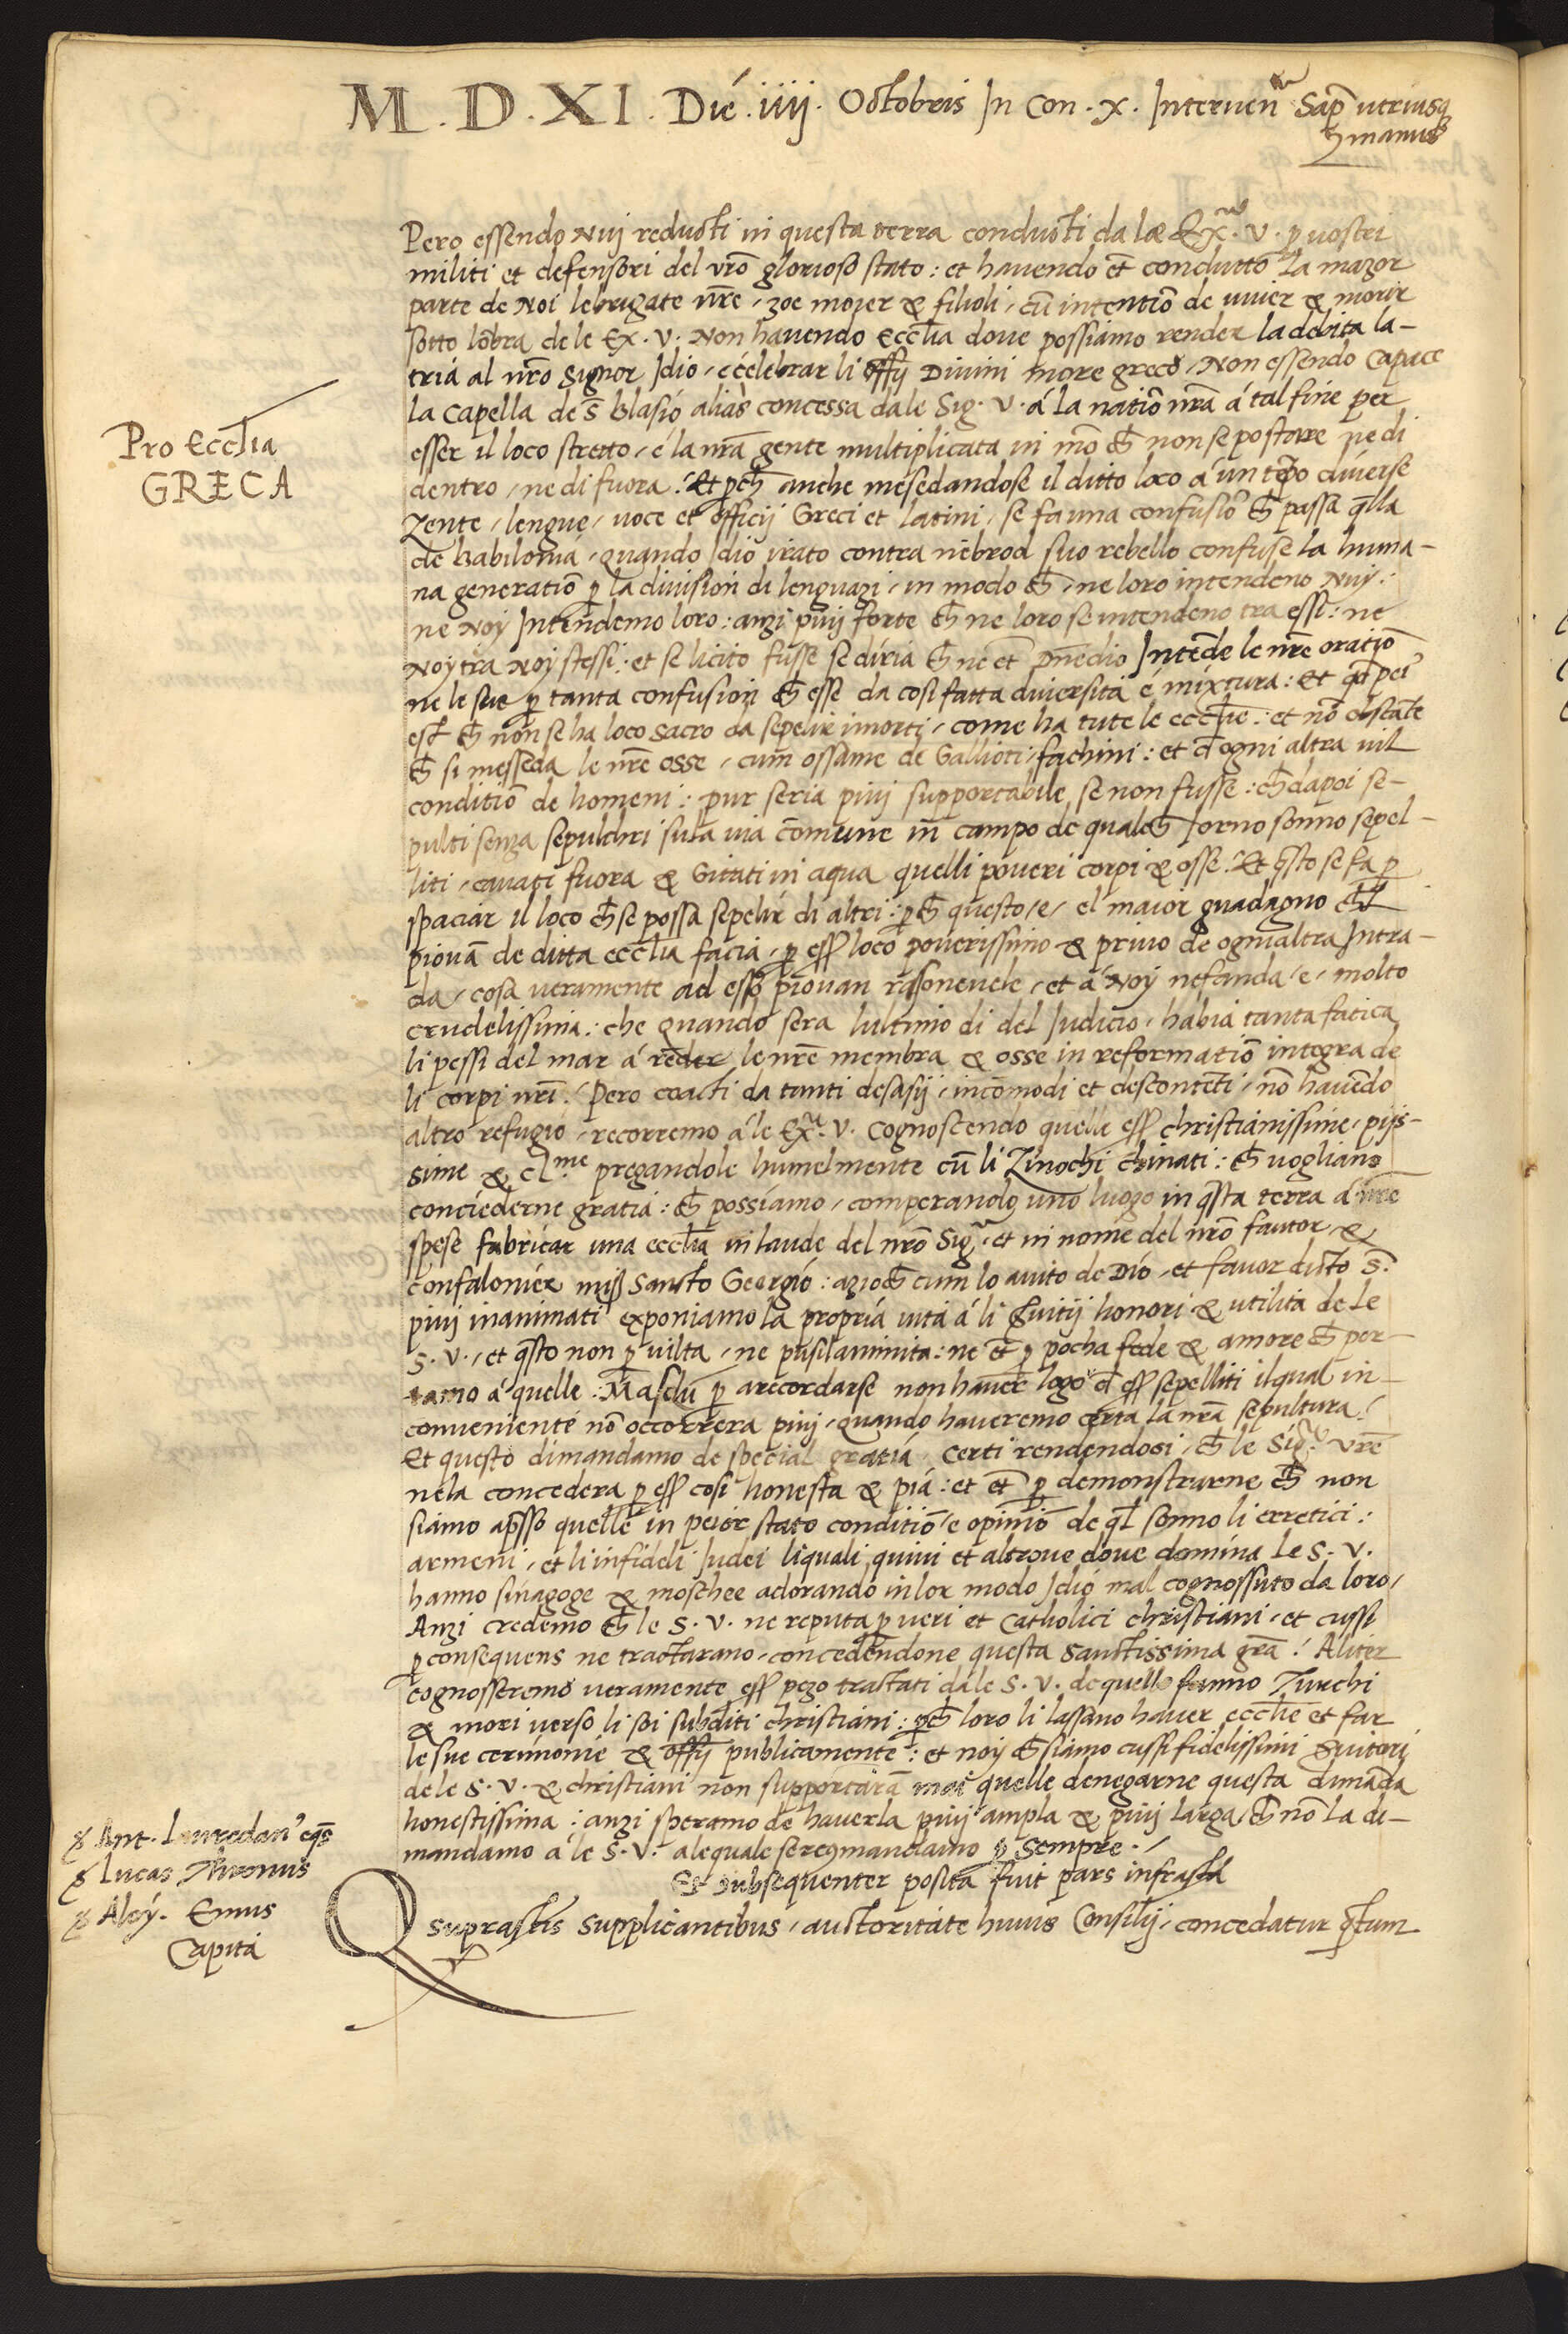 M.D.XI. Die .iiij. Octobris In Con. X. Intervenᵗⁱᵇᵘˢ Sap̄ utriusq̄
manus
Pero essendo Nuij reducti in questa terra conducti da le Ex.ᵗⁱᵉ V. ꝑ vostri
militi et defensori del vr̄o glorioso stato : et havendo et̄ conducto La mazor
parte de Noi le brigate nr̄e, zoe mojer & filioli, cū intentiō de viver & morir
sotto lōbra de le Ex. V. Non havendo Eccl̄ia dove possiamo render la debita la-
tria al nr̄o Signor Idio, e celebrar li offīj Divini more greco, Non essendo capace
La Capella de S̄ Blasio alias concessa da le Sig. V. á la natiō nr̄a á tal fine per
esser il loco stretto, é la nr̄a gente multiplicata in mō ch̄ non se po stare ne di
Pro Eccl̄ia
GRECA
dentro, ne di fuora. Et ꝑch̄ anche mesedandose il ditto loco á un tēpo diverse
Zente, lengue, voce et officij Greci et Latini, se fa una confusiō ch̄ passa q̄lla
de Babilonia, quando Idio irato contra nēbrod suo rebello confuse la huma-
na generatiō ꝑ la division di lenguazi, in modo ch̄, ne loro intendeno Nuij :
ne Noij Intendemo loro : anzi piuj forte ch̄ ne loro se intendeno tra essi : ne
Noij tra Noij stessi : et se licito fusse se diria ch̄ ne et̄ Dn̄edio Intēde le nr̄e oratiō
ne le sue ꝑ tanta confusion ch̄ esse da cosi fatta diversita é mixtura : Et qđ pei᷑
est ch̄ non se ha loco sacro da sepelir i morti, come ha tute le eccl̄ie : et nō obstāte
ch̄ si messeda le nr̄e osse, cum ossame de Gallioti, fachini : et d̄ ogni altra vil
conditiō de homeni : pur seria piuj supportabile, se non fusse : ch̄ dapoi se-
pulti senza sepulchri sula via com̄une in campo de qualch̄ Iorno sonno sepel-
liti, cavati fuora & Gittati in aqua quelli poveri corpi & osse. Et q̄sto se fa ꝑ
spaciar il loco ch̄ se possa sepelir di altri : ꝑch̄ questo, e, el maior guadagno ch̄l
piovā de ditta eccl̄ia facia, ꝑ ess̄ loco poverissimo & privo de ogni altra Intra-
da, cosa veramente ad esso piovan rasonevele, et á Noij nefanda, e, molto
crudelissima : che quando sera lultimo di del Iudicio, habia tanta fatica
li pessi del mar á rēder le nr̄e membra & osse in reformatiō integra de
li corpi nr̄i. Pero coacti da tanti desasij, incōmodi et descontēti, nō havēdo
altro refugio, recorremo á le Ex.ᵗⁱᵉ V. cognoscendo quelle ess̄ christianissime, pijs-
sime & cl.ᵐᵉ pregandole humelmente cū li Zinochi chinati : ch̄ vogliano
conciederne gratia : ch̄ possiamo, comperandolo uno luogo in q̄sta terra á nr̄e
spese fabricar una eccl̄ia in laude del nr̄o Sigʳ, et in nome del nr̄o fautor, &
confalonier miss̄ Sancto Georgio : azioch̄ cum lo aiuto de Dio, et favor dicto S.̄
piuj inanimati exponiamo la propria vita á li s̄vitij honori & utilita de Le
S. V., et q̄sto non ꝑ vilta, ne pusilanimita : ne et̄ ꝑ pocha fede & amore ch̄ por-
tamo á quelle : Ma solū ꝑ arecordarse non haver logo d̄ ess̄ sepelliti il qual in-
conveniente nō occorrera piuj, quando haveremo certa la nr̄a sepultura.
Et questo dimandamo de special gratia certi rendendosi, ch̄ le Sig.ʳⁱᵉ vr̄e
ne la concedera ꝑ ess̄ cosi honesta & pia : et et̄ ꝑ demonstrarne ch̄ non
siamo ap̄sso quelle in peior stato conditiō, e opiniō de q̄l sonno li erretici :
armeni, et li infideli Iudei li quali quivi et altrove dove domina Le S. V.
hanno sinagoge & moschee adorando in lor modo Idio mal cognossuto da loro,
Anzi credemo ch̄ le S. V. ne reputa ꝑ veri et Catholici christiani, et cussi
ꝑ consequens ne tractarano, concedendone questa sanctissima gr̄a. Aliter
cognosseremo veramente ess̄ pezo tractati da le S. V. de quello fanno Turchi
& mori verso li soi subditi christiani : ꝑch̄ loro li lassano haver eccl̄ie et far
le sue cerimonie & offīj publicamente : et noij ch̄ siamo cussi fidelissimi s̄vitori
de le S. V. & christiani non supportarā mai quelle denegarne questa dimāda
honestissima : anzi speramo de haverla piuj ampla & piuj larga, ch̄ nō la di-
mandamo á le S. V. a le quale se recomandamo ꝑ sempre.
Et subsequenter posita fuit pars infrascta
Ꝙ suprasctis supplicantibus, auctoritate huius Consilij, concedatur q̄tum
Ant. Lauredan' eq̄s
Lucas Thronus
Aloy. Emus
Capita